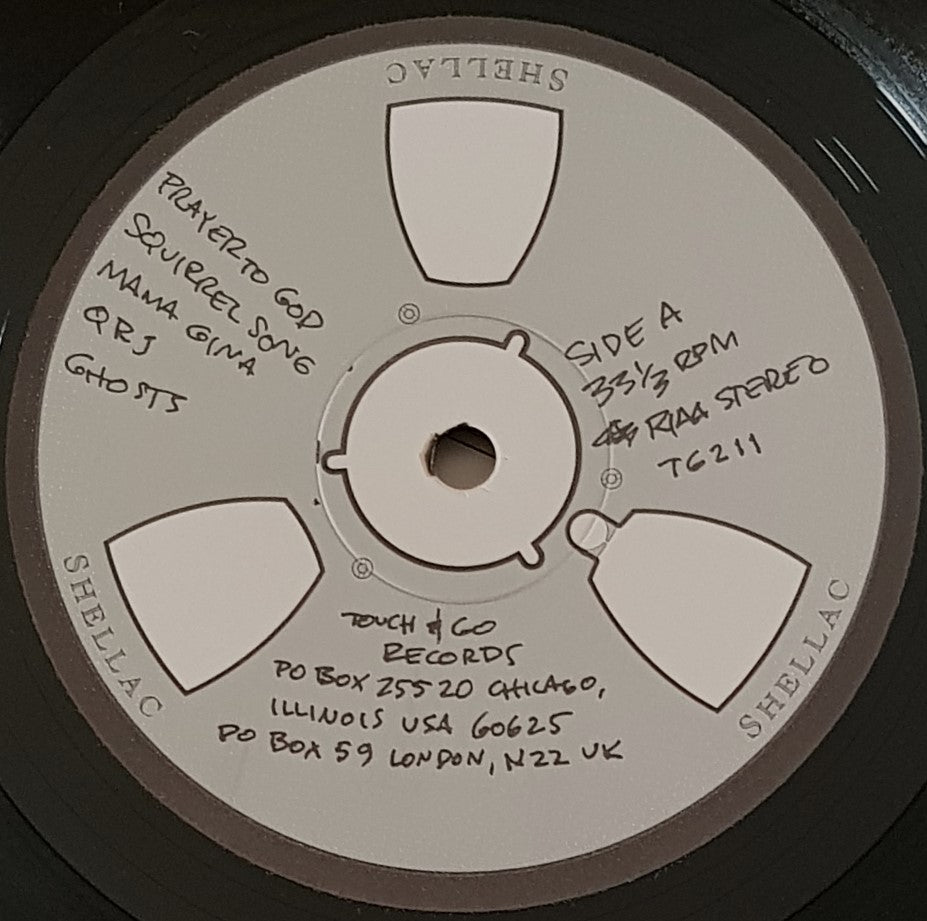 SHELLAC
PRAYER TO GOD
SQUIRREL SONG
MAMA GINA
QRJ
GHOSTS
SIDE A
33 1/3 RPM
RIAA STEREO
TG211
SHELLAC
SHELLAC
TOUCH & GO
RECORDS
PO BOX 25520 CHICAGO,
ILLINOIS USA 60625
PO BOX 59 LONDON, N22 UK